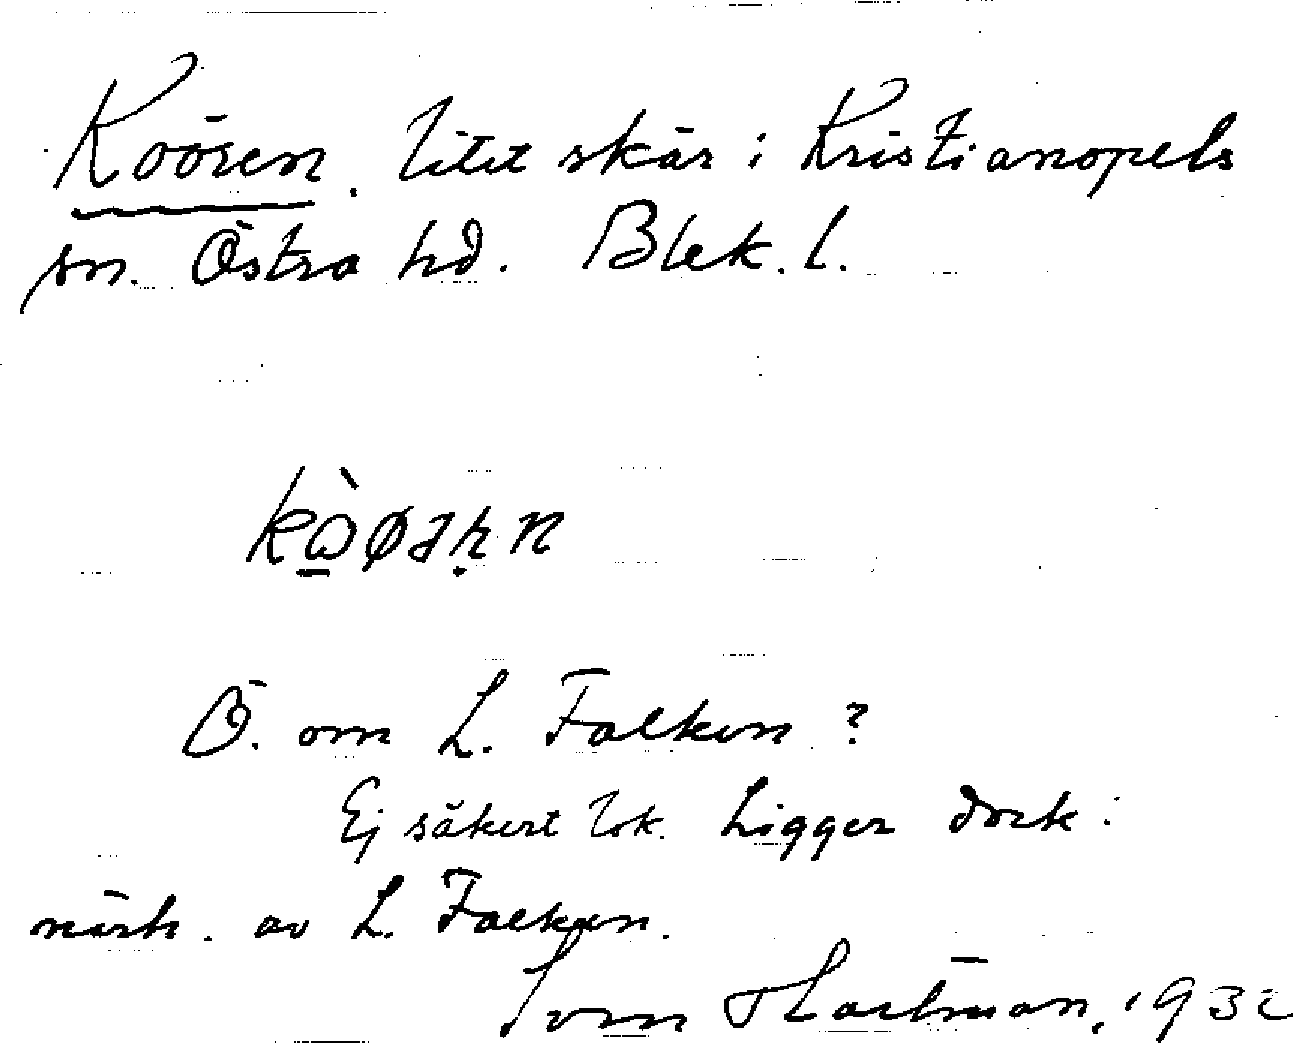 Koören. litet skär i Kristianopels
sn. Östra hd. Blek. l.
Ö. om L. Falken?
Ej säkert lok. Ligger dock i
närh. av L. Falken.
Sven Hartman, 1932